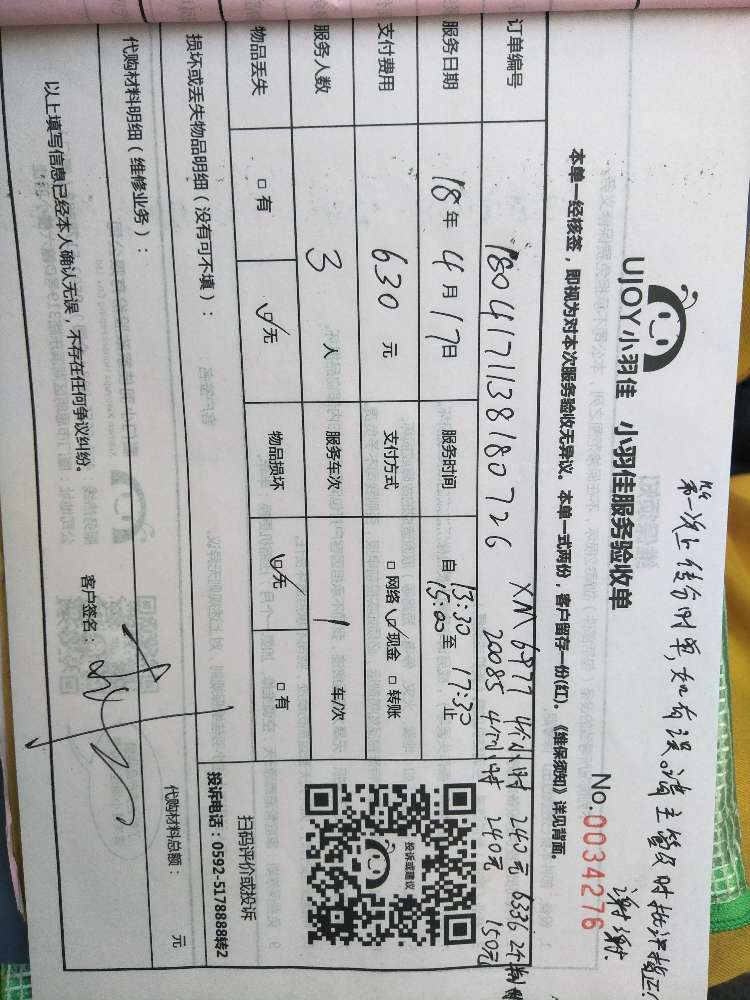 第一次上传分时单,如有误。请主管及时批评指正
谢谢
UJOY小羽佳 小羽佳服务验收单
No.0034276
本单一经核签,即视为对本次服务验收无异议。本单一式两份,客户留存一份(红)。《维保须知》详见背面。
XM6977 4个小时 240元 6336 2个小时
20085 4个小时 240元 150元
订单编号 1804171138180726
服务日期 18年4月17日 服务时间 自13:30至17:30止
15:00
支付费用 630元 支付方式 □网络 ☑现金 □转账
服务人数 3人 服务车次 1车/次
物品丢失 □有 ☑无 物品损坏 ☑无 □有
投诉或建议
扫码评价或投诉
投诉电话:0592-5178888转2
损坏或丢失物品明细(没有可不填):
代购材料明细(维修业务):
代购材料总额: 元
以上填写信息已经本人确认无误,不存在任何争议纠纷。
客户签名: